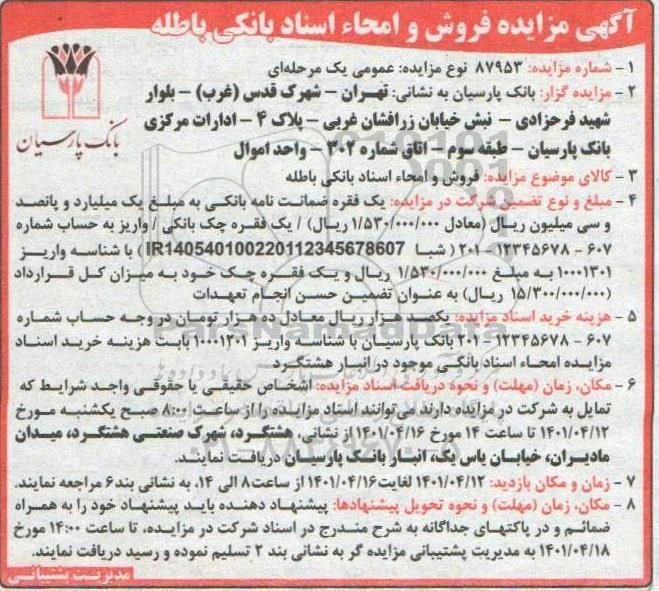 آگهی مزایده فروش و امحاء اسناد بانکی باطله
بانک پارسیان
۱ - شماره مزایده: ۸۷۹۵۳ نوع مزایده: عمومی یک مرحله‌ای
۲ - مزایده گزار: بانک پارسیان به نشانی: تهران - شهرک قدس (غرب) - بلوار
شهید فرحزادی - نبش خیابان زرافشان غربی - پلاک ۴ - ادارات مرکزی
بانک پارسیان - طبقه سوم - اتاق شماره ۳۰۲ - واحد اموال
۳ - کالای موضوع مزایده: فروش و امحاء اسناد بانکی باطله
۴ - مبلغ و نوع تضمین شرکت در مزایده: یک فقره ضمانت نامه بانکی به مبلغ یک میلیارد و پانصد
و سی میلیون ریال (معادل ۱/۵۳۰/۰۰۰/۰۰۰ ریال) / یک فقره چک بانکی / واریز به حساب شماره
۶۰۷ - ۱۲۳۴۵۶۷۸ - ۲۰۱ ( شبا IR140540100220112345678607 ) با شناسه واریز
۱۰۰۰۱۳۰۱ به مبلغ ۱/۵۳۰/۰۰۰/۰۰۰ ریال و یک فقره چک خود به میزان کل قرارداد
(۱۵/۳۰۰/۰۰۰/۰۰۰ ریال) به عنوان تضمین حسن انجام تعهدات
۵ - هزینه خرید اسناد مزایده: یکصد هزار ریال معادل ده هزار تومان در وجه حساب شماره
۶۰۷ - ۱۲۳۴۵۶۷۸ - ۲۰۱ بانک پارسیان با شناسه واریز ۱۰۰۰۱۳۰۱ بابت هزینه خرید اسناد
مزایده امحاء اسناد بانکی موجود در انبار هشتگرد
۶ - مکان، زمان (مهلت) و نحوه دریافت اسناد مزایده: اشخاص حقیقی یا حقوقی واجد شرایط که
تمایل به شرکت در مزایده دارند می‌توانند اسناد مزایده را از ساعت ۸:۰۰ صبح یکشنبه مورخ
۱۴۰۱/۰۴/۱۲ تا ساعت ۱۴ مورخ ۱۴۰۱/۰۴/۱۶ از نشانی، هشتگرد، شهرک صنعتی هشتگرد، میدان
مادیران، خیابان یاس یک، انبار بانک پارسیان دریافت نمایند.
۷ - زمان و مکان بازدید: ۱۴۰۱/۰۴/۱۲ لغایت ۱۴۰۱/۰۴/۱۶ از ساعت ۸ الی ۱۴، به نشانی بند ۶ مراجعه نمایند.
۸ - مکان، زمان (مهلت) و نحوه تحویل پیشنهادها: پیشنهاد دهنده باید پیشنهاد خود را به همراه
ضمائم و در پاکتهای جداگانه به شرح مندرج در اسناد شرکت در مزایده، تا ساعت ۱۴:۰۰ مورخ
۱۴۰۱/۰۴/۱۸ به مدیریت پشتیبانی مزایده گر به نشانی بند ۲ تسلیم نموده و رسید دریافت نمایند.
مدیریت پشتیبانی
ParsNamadData